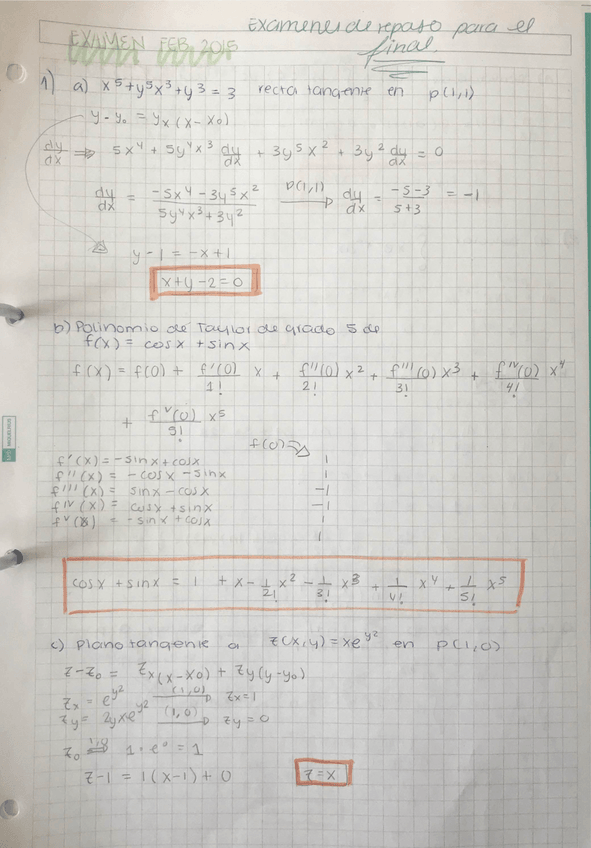 Examenes de repaso para el
final.
EXAMEN FEB 2015
1) a) x⁵+y⁵x³+y³=3 recta tangente en P(1,1)
y-y₀ = yₓ(x-x₀)
dy/dx ⇒ 5x⁴ + 5y⁴x³ dy/dx + 3y⁵x² + 3y² dy/dx = 0
dy/dx = (-5x⁴-3y⁵x²)/(5y⁴x³+3y²) P(1,1)→ dy/dx = (-5-3)/(5+3) = -1
y-1 = -x+1
x+y-2=0
b) Polinomio de Taylor de grado 5 de
f(x) = cosx + sinx
f(x) = f(0) + f'(0)/1! x + f''(0)/2! x² + f'''(0)/3! x³ + f^IV(0)/4! x⁴
+ f^V(0)/5! x⁵
f(0) ⇒ 1
f'(x) = -sinx+cosx 1
f''(x) = -cosx-sinx -1
f'''(x) = sinx-cosx -1
f^IV(x) = cosx+sinx 1
f^V(x) = -sinx+cosx 1
cosx + sinx = 1 + x - 1/2! x² - 1/3! x³ + 1/4! x⁴ + 1/5! x⁵
c) Plano tangente a z(x,y)=xe^y² en P(1,0)
z-z₀ = zₓ(x-x₀) + zy(y-y₀)
zₓ = e^y² (1,0)→ zx=1
zy = 2yxe^y² (1,0)→ zy=0
z₀ 1,0⇒ 1·e⁰ = 1
z-1 = 1(x-1)+0 z=x